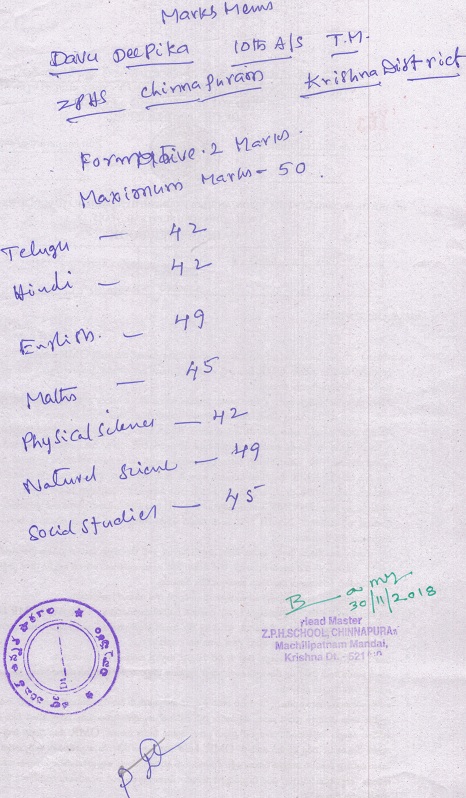 Marks Memo
Davu Deepika 10th A/S T.M.
ZPHS Chinnapuram Krishna District
Formative.2 Marks.
Maximum Marks - 50.
Telugu — 42
Hindi — 42
English. — 49
Maths — 45
Physical Science — 42
Natural Science — 49
Social Studies — 45
30/11/2018
Head Master
Z.P.H.SCHOOL, CHINNAPURAM
Machilipatnam Mandal,
Krishna Dt. - 521